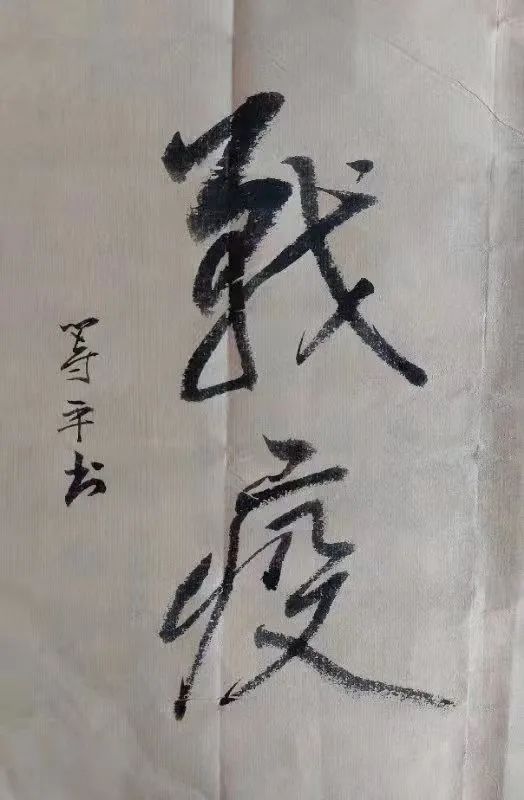 戰疫
等平书